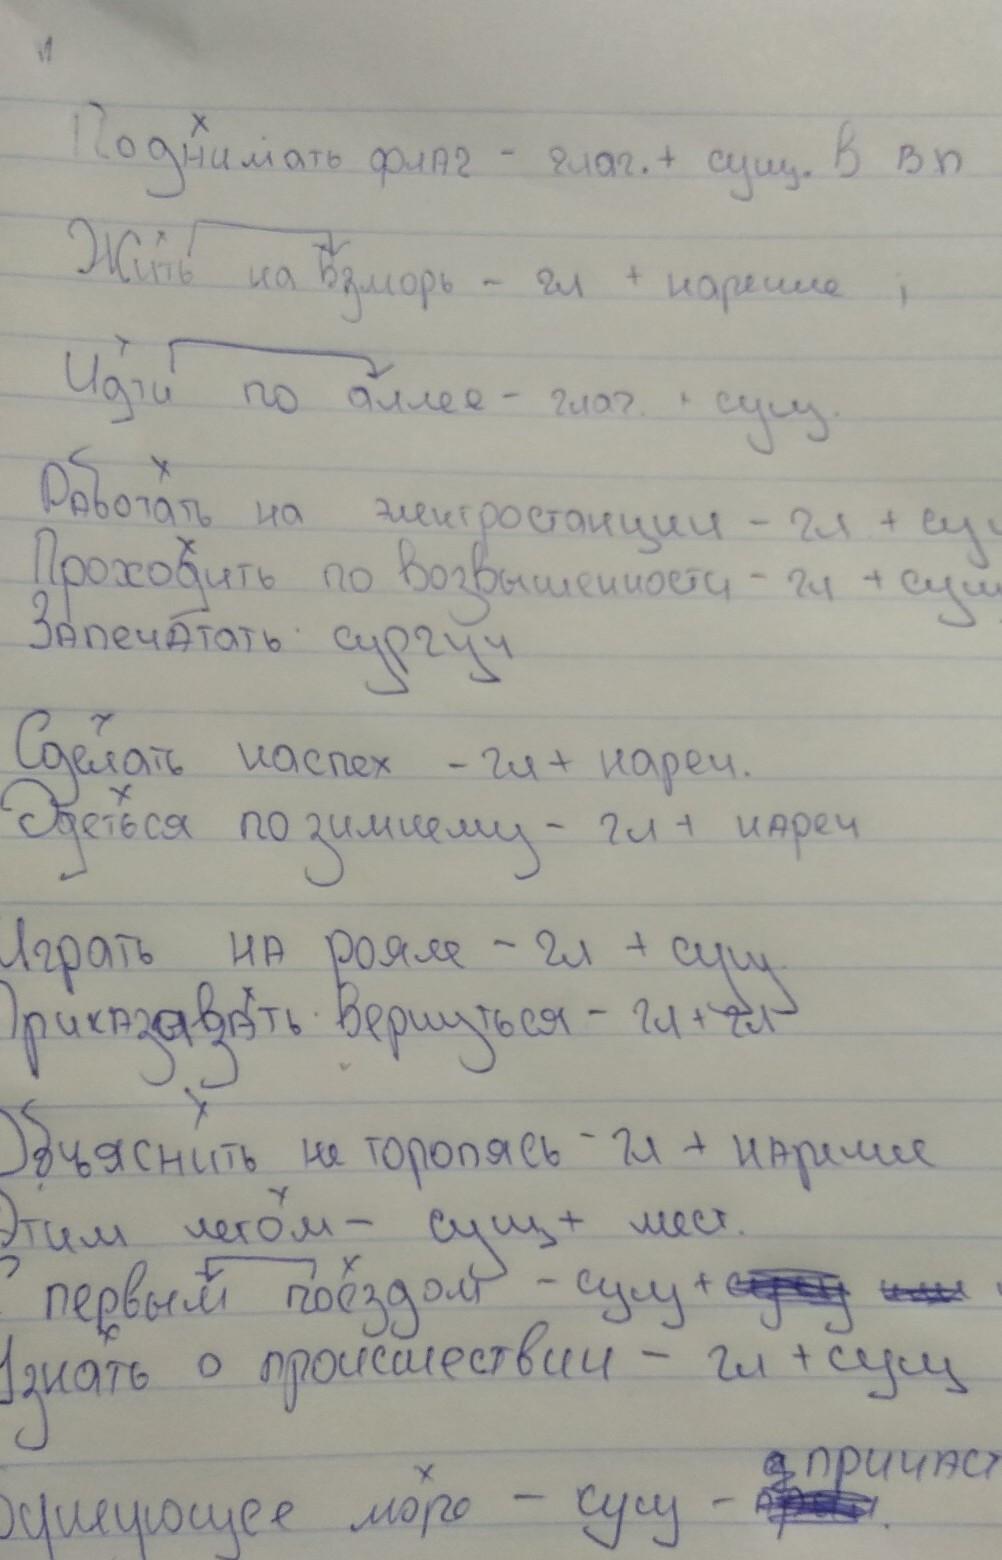 Поднимать флаг - глаг. + сущ. в вп
Жить на взморь - гл + наречие
Идти по аллее - глаг. + сущ.
Работать на электростанции - гл + сущ
Проходить по возвышенности - гл + сущ
Запечатать сургуч
Сделать наспех - гл + нареч.
Одеться по зимнему - гл + нареч
Играть на рояле - гл + сущ
Приказавать вернуться - гл + гл
Объяснить не торопясь - гл + наречие
Этим летом - сущ + мест.
С первым поездом - сущ +
Узнать о происшествии - гл + сущ
причаст
море - сущ -